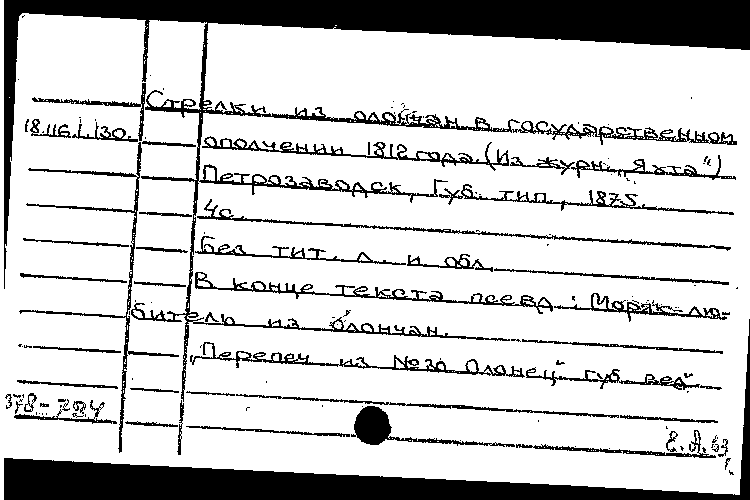 Стрелки из олончан в государственном
18.116.1.130.
ополчении 1812 года. (Из журн. „Яхта")
Петрозаводск, Губ. тип., 1875.
4с.
Без тит. л. и обл.
В конце текста псевд.: Моряк-лю-
битель из олончан.
„Перепеч из №30 Олонец" губ. вед"
378-784
Е.А. 63